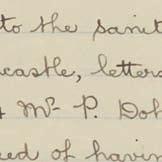 to the sanit
castle, letters
Mr P. Doh
eed of havi